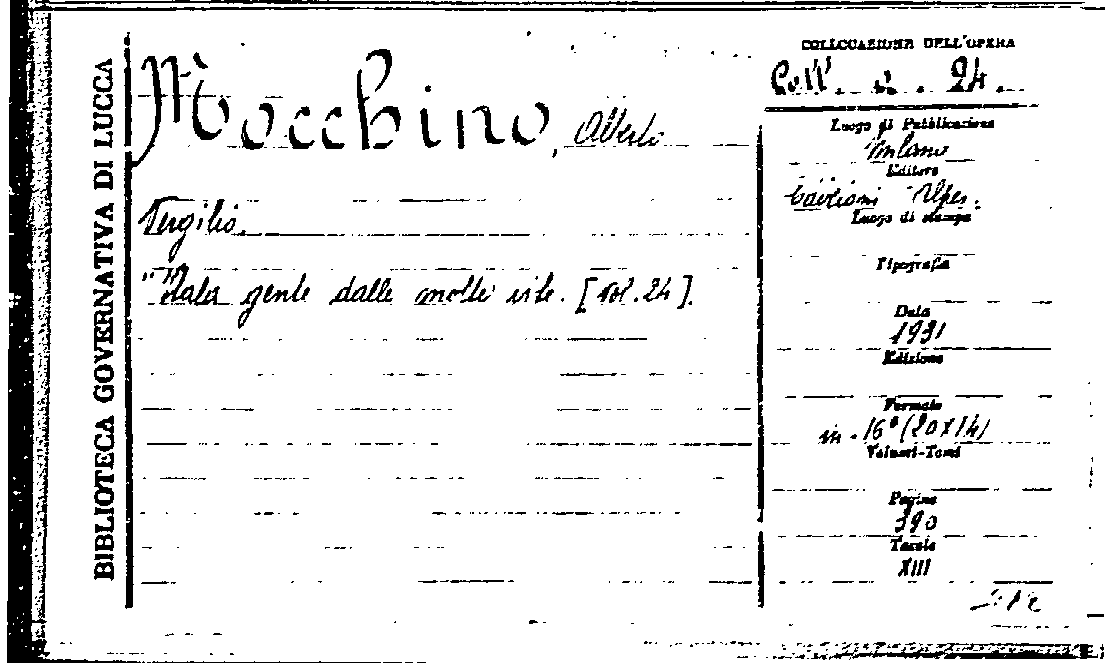 BIBLIOTECA GOVERNATIVA DI LUCCA
Mocchino, Alberto
Vergilio.
"Itala gente dalle molte vite. [Vol. 24].
COLLOCAZIONE DELL'OPERA
Coll. 2. 24.
Luogo di Pubblicazione
Milano
Editore
Alpes.
Luogo di stampa
Tipografia
Data
1931
Edizione
Formato
in-16° (20x14)
Volumi-Tomi
Pagine
390
Tavole
XIII